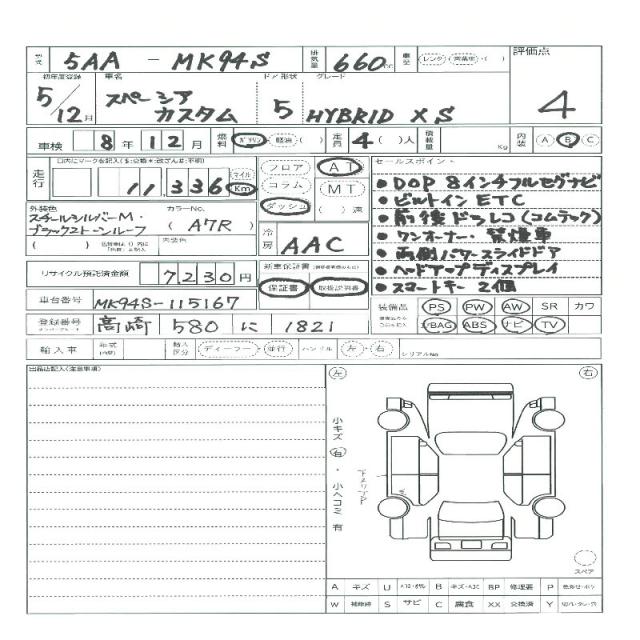 型式 5AA - MK94S 排気量 660cc 車歴 レンタ・営業車・( ) 評価点
初年度登録 車名 ドア形状 グレード
5/12月 スペーシア カスタム 5 HYBRID XS 4
車検 8年 12月 燃料 ガソリン・軽油・( ) 定員 4( )人 積載量 Kg 内装 A B C
走行 11,336 マイル Km
フロア AT
コラム MT
ダッシュ ( )速
セールスポイント
•DOP 8インチフルセグナビ
•ビルトインETC
•前後ドラレコ(コムテック)
•ワンオーナー・禁煙車
•両側パワースライドドア
•ヘッドアップディスプレイ
•スマートキー2個
外装色 カラーNo.
スチールシルバーM・ブラック2トーンルーフ (A7R)
内装色
冷房 AAC
リサイクル預託済金額 7230円
新車保証書
保証書 取扱説明書
車台番号 MK94S-115167
装備品 PS PW AW SR カワ
エアBAG ABS ナビ TV
登録番号 高崎 580 に 1821
輸入車 年式 輸入区分 ディーラー・並行 ハンドル 左・右 シリアルNo
出品店記入(注意事項)
左 右
小キズ 有・小ヘコミ 有
スペア
A キズ U B キズ・へこ BP 修理要 P
W 補修跡 S サビ C 腐食 XX 交換済 Y